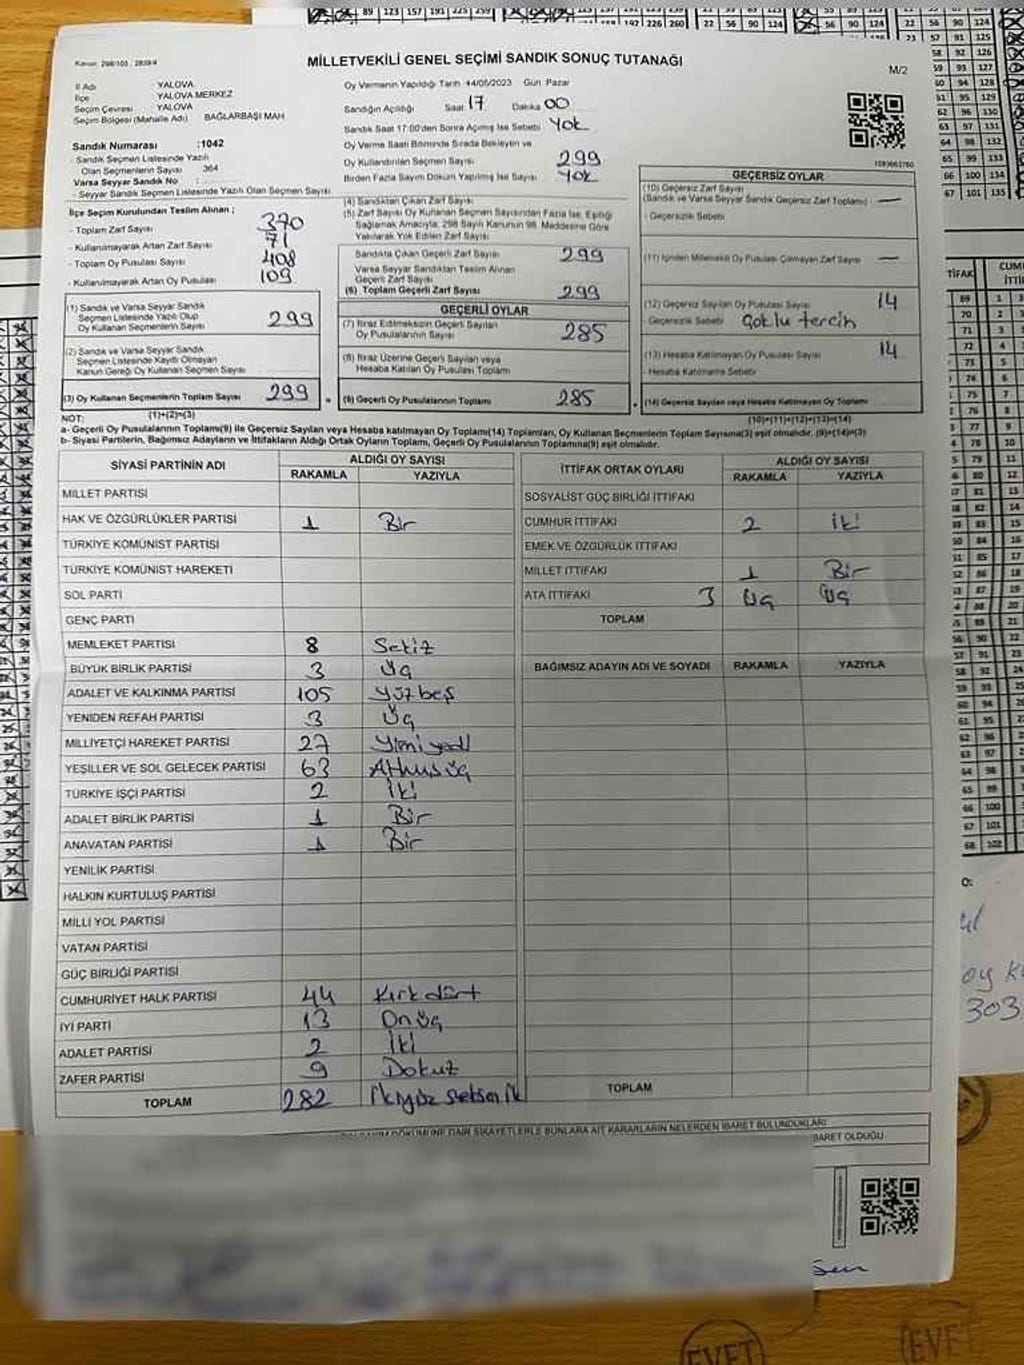 MİLLETVEKİLİ GENEL SEÇİMİ SANDIK SONUÇ TUTANAĞI
M/2
İl Adı YALOVA
İlçe YALOVA MERKEZ
Seçim Çevresi YALOVA
Seçim Bölgesi (Mahalle Adı) BAĞLARBAŞI MAH
Sandık Numarası :1042
- Sandık Seçmen Listesinde Yazılı
Olan Seçmenlerin Sayısı 364
Varsa Seyyar Sandık No :
- Seyyar Sandık Seçmen Listesinde Yazılı Olan Seçmen Sayısı
Oy Vermenin Yapıldığı Tarih 14/05/2023 Gün Pazar
Sandığın Açıldığı Saat 17 Dakika 00
Sandık Saat 17:00'den Sonra Açılmış İse Sebebi Yok
Oy Verme Saati Bitiminde Sırada Bekleyen ve
Oy Kullandırılan Seçmen Sayısı 299
Birden Fazla Sayım Döküm Yapılmış İse Sayısı Yok
İlçe Seçim Kurulundan Teslim Alınan ;
- Toplam Zarf Sayısı 370
- Kullanılmayarak Artan Zarf Sayısı 71
- Toplam Oy Pusulası Sayısı 408
- Kullanılmayarak Artan Oy Pusulası 109
(1) Sandık ve Varsa Seyyar Sandık
Seçmen Listesinde Yazılı Olup
Oy Kullanan Seçmenlerin Sayısı 299
(2) Sandık ve Varsa Seyyar Sandık
Seçmen Listesinde Kayıtlı Olmayan
Kanun Gereği Oy Kullanan Seçmen Sayısı
(3) Oy Kullanan Seçmenlerin Toplam Sayısı 299
(1)+(2)=(3)
(4) Sandıktan Çıkan Zarf Sayısı
(5) Zarf Sayısı Oy Kullanan Seçmen Sayısından Fazla İse, Eşitliği
Sağlamak Amacıyla, 298 Sayılı Kanunun 98. Maddesine Göre
Yakılarak Yok Edilen Zarf Sayısı
Sandıkta Çıkan Geçerli Zarf Sayısı 299
Varsa Seyyar Sandıktan Teslim Alınan
Geçerli Zarf Sayısı
(6) Toplam Geçerli Zarf Sayısı 299
GEÇERLİ OYLAR
(7) İtiraz Edilmeksizin Geçerli Sayılan
Oy Pusulalarının Sayısı 285
(8) İtiraz Üzerine Geçerli Sayılan veya
Hesaba Katılan Oy Pusulası Toplamı
(9) Geçerli Oy Pusulalarının Toplamı 285
GEÇERSİZ OYLAR
(10) Geçersiz Zarf Sayısı
(Sandık ve Varsa Seyyar Sandık Geçersiz Zarf Toplamı) —
- Geçersizlik Sebebi
(11) İçinden Milletvekili Oy Pusulası Çıkmayan Zarf Sayısı —
(12) Geçersiz Sayılan Oy Pusulası Sayısı 14
- Geçersizlik Sebebi Çoklu tercih
(13) Hesaba Katılmayan Oy Pusulası Sayısı 14
- Hesaba Katılmama Sebebi
(14) Geçersiz Sayılan veya Hesaba Katılmayan Oy Toplamı
(10)+(11)+(12)+(13)=(14)
NOT:
a- Geçerli Oy Pusulalarının Toplamı(9) ile Geçersiz Sayılan veya Hesaba katılmayan Oy Toplamı(14) Toplamları, Oy Kullanan Seçmenlerin Toplam Sayısına(3) eşit olmalıdır. (9)+(14)=(3)
b- Siyasi Partilerin, Bağımsız Adayların ve İttifakların Aldığı Ortak Oyların Toplamı, Geçerli Oy Pusulalarının Toplamına(9) eşit olmalıdır.
SİYASİ PARTİNİN ADI ALDIĞI OY SAYISI
RAKAMLA YAZIYLA
MİLLET PARTİSİ
HAK VE ÖZGÜRLÜKLER PARTİSİ 1 Bir
TÜRKİYE KOMÜNİST PARTİSİ
TÜRKİYE KOMÜNİST HAREKETİ
SOL PARTİ
GENÇ PARTİ
MEMLEKET PARTİSİ 8 Sekiz
BÜYÜK BİRLİK PARTİSİ 3 Üç
ADALET VE KALKINMA PARTİSİ 105 Yüzbeş
YENİDEN REFAH PARTİSİ 3 Üç
MİLLİYETÇİ HAREKET PARTİSİ 27 Yirmiyedi
YEŞİLLER VE SOL GELECEK PARTİSİ 63 Altmışüç
TÜRKİYE İŞÇİ PARTİSİ 2 İki
ADALET BİRLİK PARTİSİ 1 Bir
ANAVATAN PARTİSİ 1 Bir
YENİLİK PARTİSİ
HALKIN KURTULUŞ PARTİSİ
MİLLİ YOL PARTİSİ
VATAN PARTİSİ
GÜÇ BİRLİĞİ PARTİSİ
CUMHURİYET HALK PARTİSİ 44 Kırkdört
İYİ PARTİ 13 Onüç
ADALET PARTİSİ 2 İki
ZAFER PARTİSİ 9 Dokuz
TOPLAM 282 İkiyüz seksen iki
İTTİFAK ORTAK OYLARI ALDIĞI OY SAYISI
RAKAMLA YAZIYLA
SOSYALİST GÜÇ BİRLİĞİ İTTİFAKI
CUMHUR İTTİFAKI 2 İki
EMEK VE ÖZGÜRLÜK İTTİFAKI
MİLLET İTTİFAKI 1 Bir
ATA İTTİFAKI 3 Üç Üç
TOPLAM
BAĞIMSIZ ADAYIN ADI VE SOYADI RAKAMLA YAZIYLA
TOPLAM
EVET
EVET